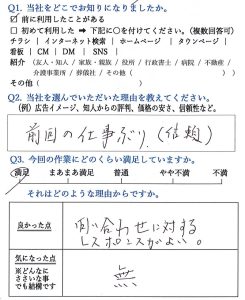 Q1. 当社をどこでお知りになりましたか。
☑ 前に利用したことがある
□ 初めて利用した ⇒ 下記に○を付けてください。(複数回答可)
チラシ | インターネット検索 | ホームページ | タウンページ |
看板 | CM | DM | SNS |
紹介 (友人・知人 / 家族・親族 / 住所 / 行政書士 / 病院 / 不動産 /
介護事業所 / 葬儀社 / その他 ( ) )
その他 ( )
Q2. 当社を選んでいただいた理由を教えてください。
(例) 広告イメージ、知人からの評判、価格の安さ、信頼性など。
前回の仕事ぶり。(信頼)
Q3. 今回の作業にどのくらい満足していますか。
満足 まあまあ満足 普通 やや不満 不満
それはどのような理由からですか。
良かった点
問い合わせに対する
レスポンスがよい。
気になった点
※どんなに
ささいな事
でも結構です
無